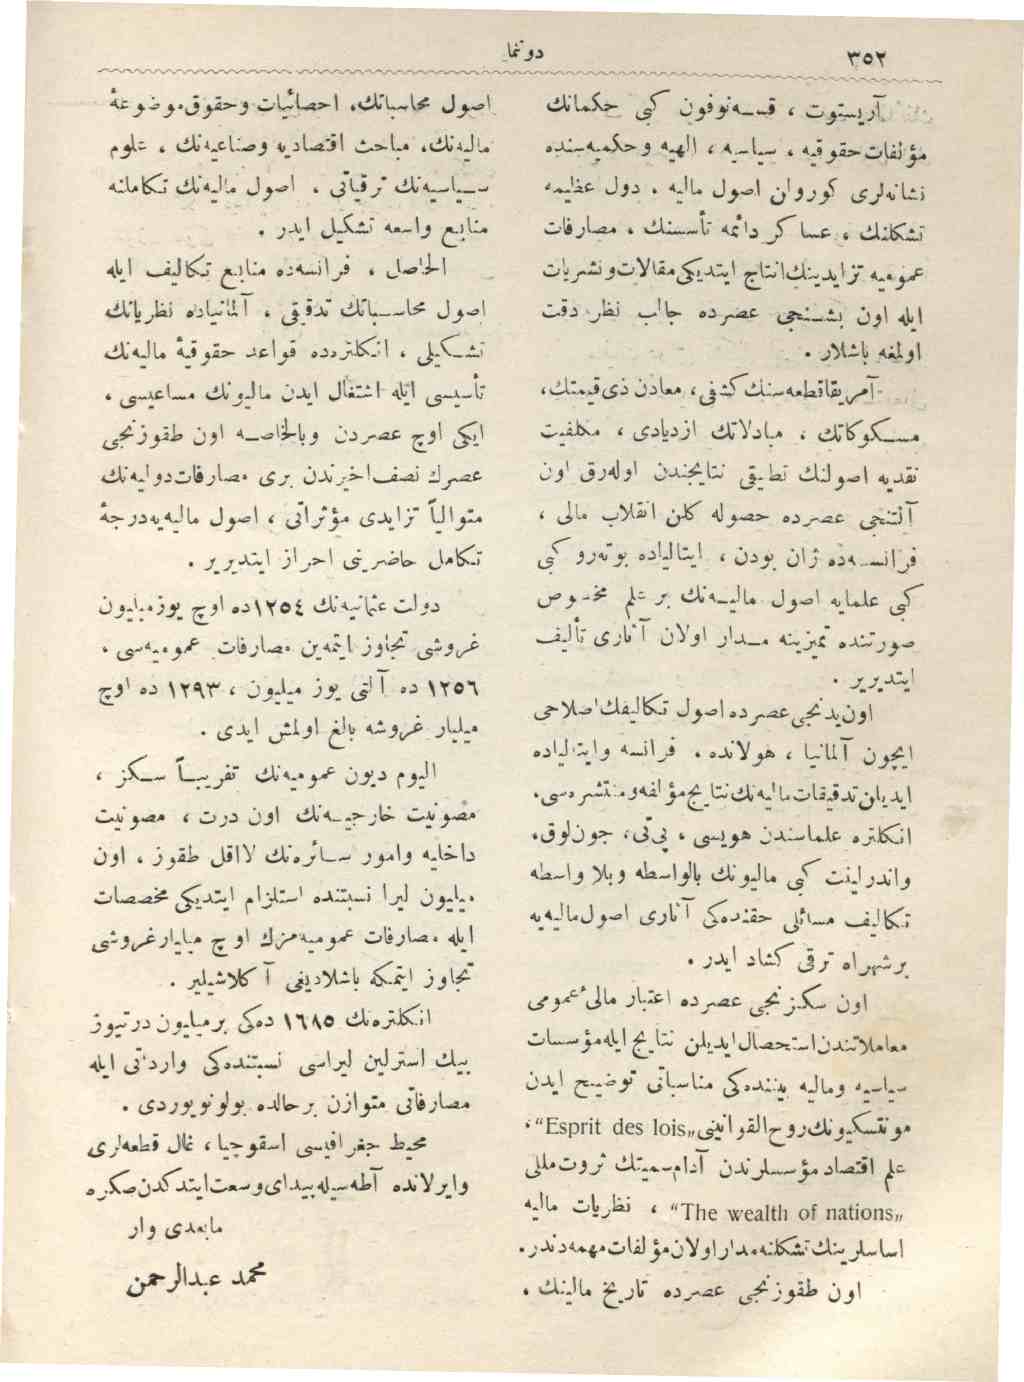 ٣٥٢
دوننما
آریستوت ، قسه‌نوفون كبی حكمانك
مؤلفات حقوقیه ، سیاسیه ، الهیه وحكمیه‌سنده
نشانه‌لری كورولن اصول مالیه ، دول عظیمه
تشكلنك ، عساكر دائمه تأسسنك ، مصارفات
عمومیه تزایدینك انتاج ایتدیكی مقالات ونشریات
ایله اون بشنجی عصرده جالب نظر دقت
اولمغه باشلار .
آمریقا قطعه‌سنك كشفی ، معادن ذی قیمتك ،
مسكوكاتك ، مبادلاتك ازدیادی ، مكلفیت
نقدیه اصولنك تطبیقی نتایجندن اوله‌رق اون
آلتنجی عصرده حصوله كلن انقلاب مالی ،
فرانسه‌ده ژان بودن ، ایتالیاده بوته‌رو كبی
كبی علمایه اصول مالیه‌نك بر علم مخصوص
صورتنده تمیزینه مدار اولان آثاری تألیف
ایتدیریر .
اون‌یدنجی عصرده اصول تكالیفك اصلاحی
ایچون آلمانیا ، هولانده ، فرانسه وایتالیاده
ایدیلن تدقیقات مالیه‌نك نتایج مؤلفه ومنتشره‌سی ،
انكلتره علماسندن هوبسی ، پی‌تی ، جون لوق ،
واندرلینت كبی مالیونك بالواسطه وبلا واسطه
تكالیف مسائلی حقنده‌كی آثاری اصول مالیه‌یه
بر شهراه ترقی كشاد ایدر .
اون سكزنجی عصرده اعتبار مالئ عمومی
معاملاتندن استحصال ایدیلن نتایج ایله مؤسسات
سیاسیه ومالیه بیننده‌كی مناسباتی توضیح ایدن
مونتسكیونك روح القوانینی „Esprit des lois“ ،
علم اقتصاد مؤسسلرندن آدام سمیتك ثروت مللی
„The wealth of nations“ ، نظریات مالیه
اساسلرینك تشكلنه مدار اولان مؤلفات مهمه‌دندر .
اون طقوزنجی عصرده تاریخ مالینك ،
اصول محاسباتك ، احصائیات وحقوق موضوعهٔ
مالیه‌نك ، مباحث اقتصادیه وصناعیه‌نك ، علوم
سیاسیه‌نك ترقیاتی ، اصول مالیه‌نك تكاملنه
منابع واسعه تشكیل ایدر .
الحاصل ، فرانسه‌ده منابع تكالیف ایله
اصول محاسباتك تدقیقی ، آلمانیاده نظریاتك
تشكیلی ، انكلترده‌ده قواعد حقوقیهٔ مالیه‌نك
تأسیسی ایله اشتغال ایدن مالیونك مساعیسی ،
ایكی اوچ عصردن وبالخاصه اون طقوزنجی
عصرك نصف اخیرندن بری مصارفات دولیه‌نك
متوالیاً تزایدی مؤثراتی ، اصول مالیه‌یه درجهٔ
تكامل حاضرینی احراز ایتدیریر .
دولت عثمانیه‌نك ١٢٥٤ده اوچ یوز میلیون
غروشی تجاوز ایتمه‌ین مصارفات عمومیه‌سی ،
١٢٥٦ ده آلتی یوز میلیون ، ١٢٩٣ ده اوچ
میلیار غروشه بالغ اولمش ایدی .
الیوم دیون عمومیه‌نك تقریباً سكز ،
مصونیت خارجیه‌نك اون درت ، مصونیت
داخلیه وامور سائره‌نك لااقل طقوز ، اون
میلیون لیرا نسبتنده استلزام ایتدیكی مخصصات
ایله مصارفات عمومیه‌مزك اوچ میلیار غروشی
تجاوز ایتمكه باشلادیغی آكلاشیلیر .
انكلتره‌نك ١٦٨٥ ده‌كی بر میلیون درتیوز
بیك استرلین لیراسی نسبتنده‌كی وارداتی ایله
مصارفاتی متوازن بر حالده بولونویوردی .
محیط جغرافیسی اسقوچیا ، غال قطعه‌لری
وایرلانده آطه‌سیله پیدای وسعت ایتدكدن صكره
مابعدی وار
محمد عبدالرحمن